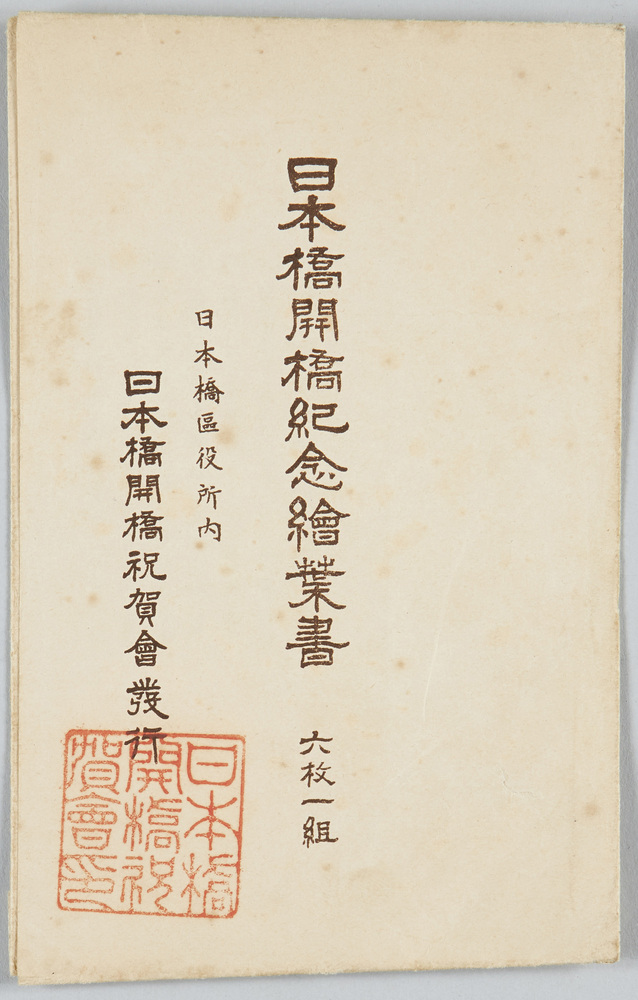 日本橋開橋紀念繪葉書 六枚一組
日本橋區役所内
日本橋開橋祝賀會發行
日本橋
開橋祝
賀會印